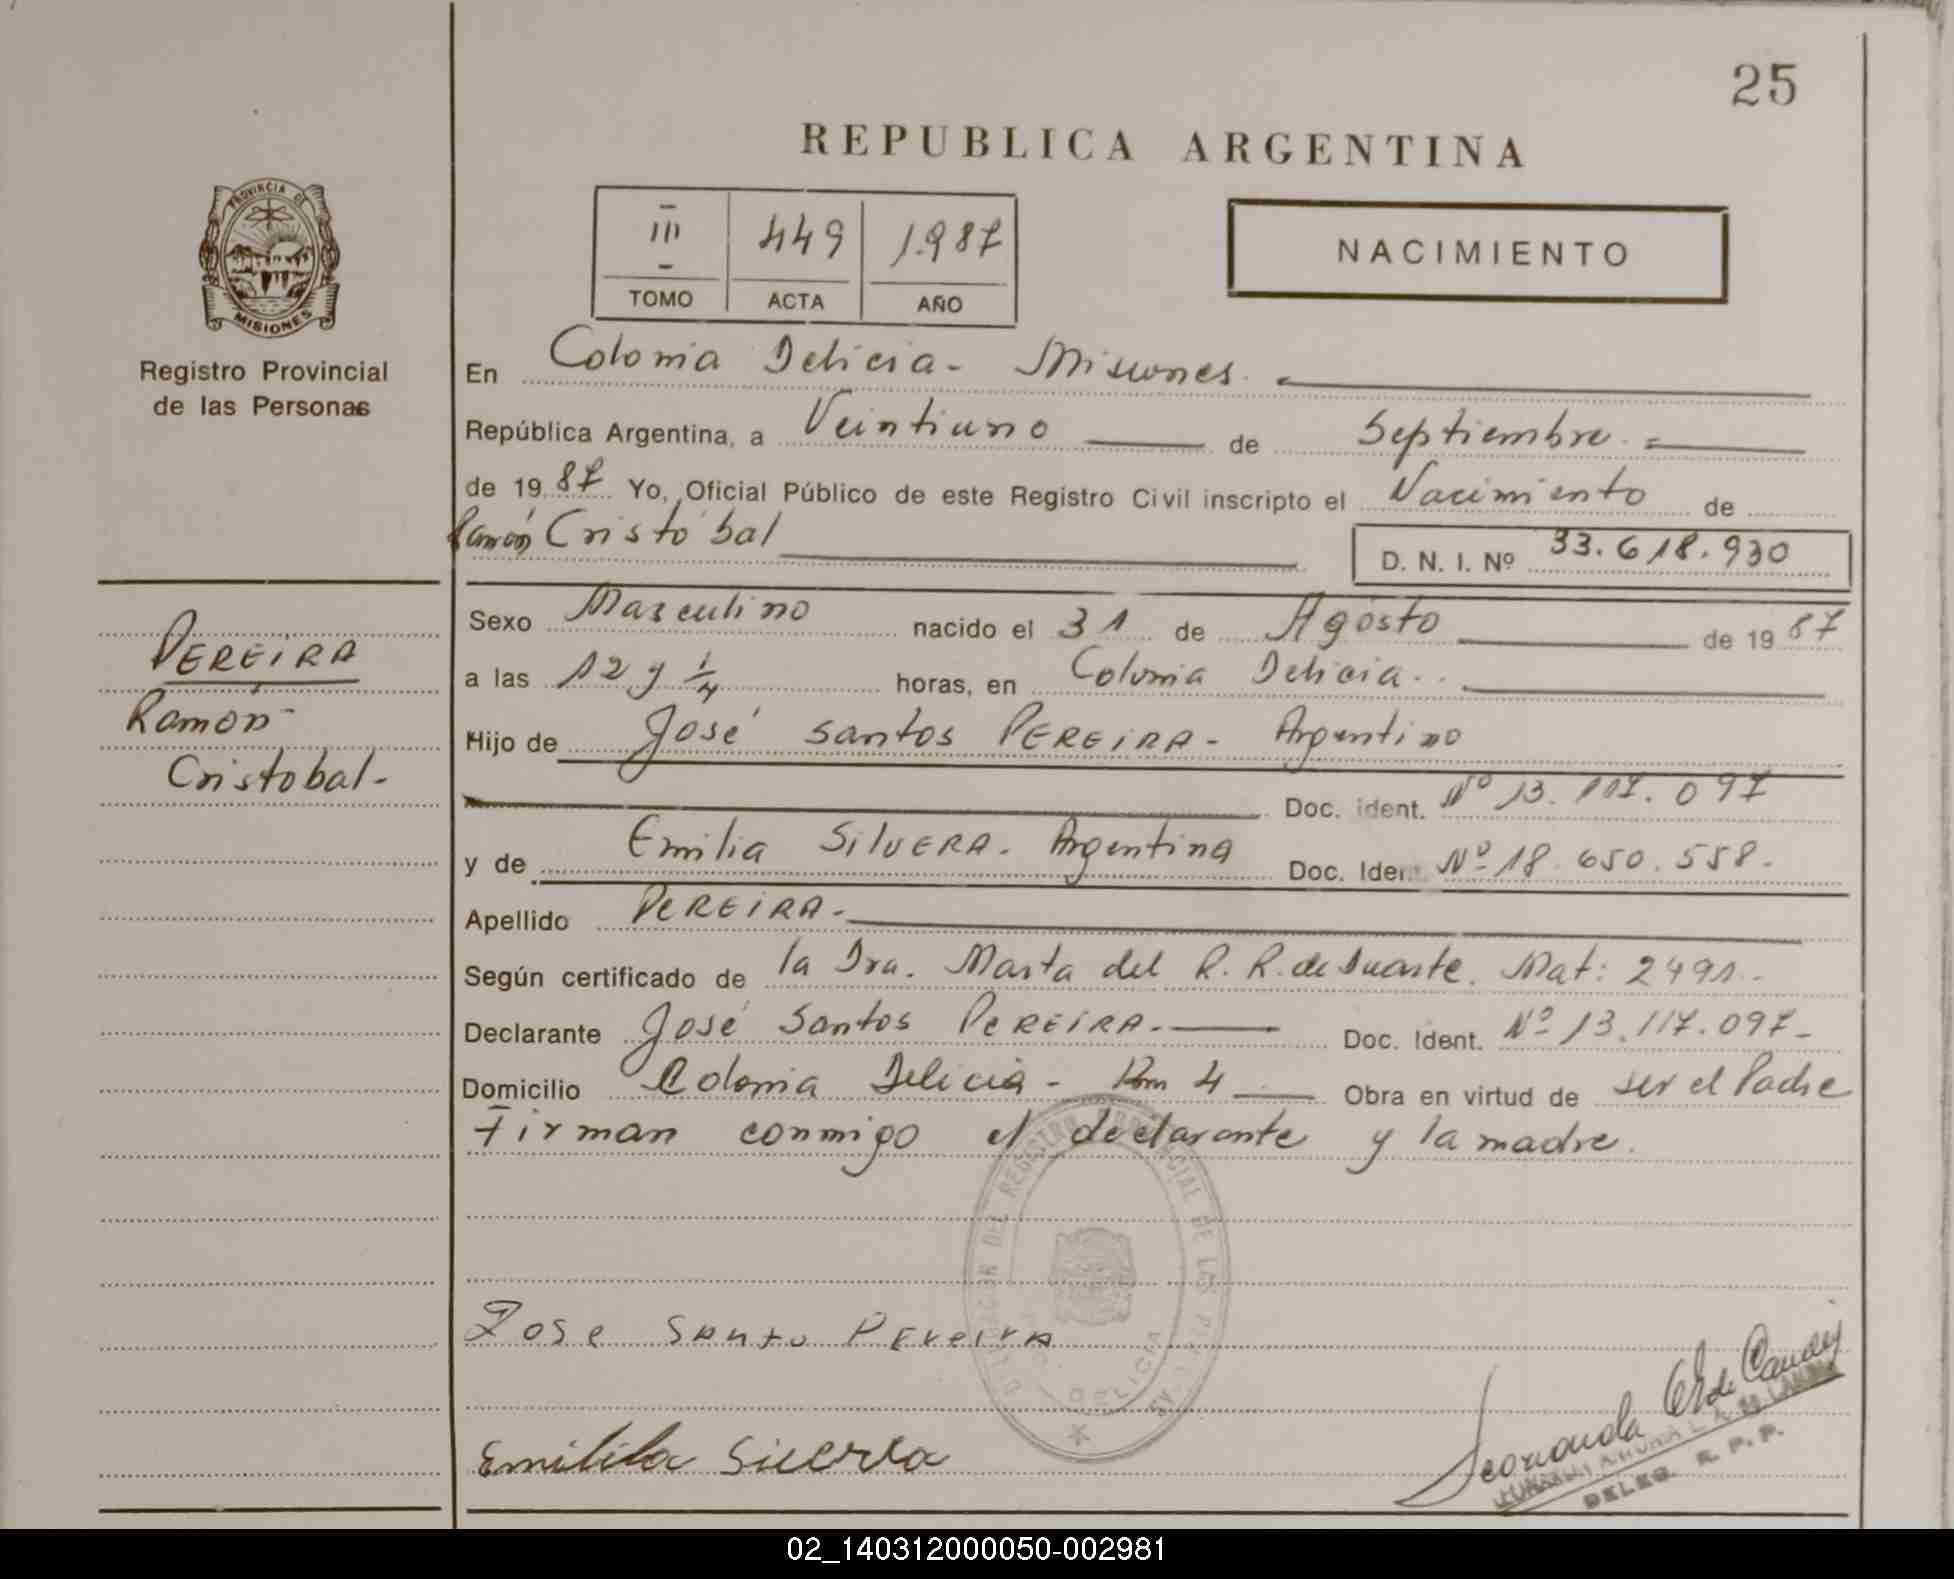 25
REPUBLICA ARGENTINA
III 449 1.987
TOMO ACTA AÑO
NACIMIENTO
PROVINCIA DE
MISIONES
Registro Provincial
de las Personas
PEREIRA
Ramón
Cristobal-
En Colonia Delicia - Misiones.
República Argentina, a Veintiuno de Septiembre.
de 19 87 Yo, Oficial Público de este Registro Civil inscripto el Nacimiento de
Ramón Cristóbal
D. N. I. Nº 33.618.930
Sexo Masculino nacido el 31 de Agosto de 19 87
a las 12 y 1/4 horas, en Colonia Delicia..
Hijo de José Santos PEREIRA - Argentino
Doc. ident. Nº 13.117.097
y de Emilia SILVERA. Argentina Doc. Ident. Nº 18.650.558.
Apellido PEREIRA.
Según certificado de la Dra. Marta del R. R. de Duarte. Mat: 2491.
Declarante José Santos PEREIRA. Doc. Ident. Nº 13.117.097-
Domicilio Colonia Delicia - Km 4 Obra en virtud de ser el Padre
Firman conmigo el declarante y la madre.
DELEGACION DEL REGISTRO PROVINCIAL DE LAS
DELICIA
Jose Santo Pereira
DELEG. R. P. P.
02_140312000050-002981